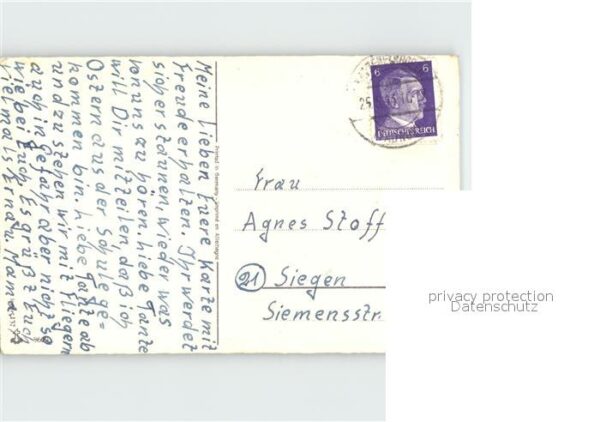 Meine Lieben Euere Karte mit
Freude erhalten. Ihr werdet
sicher staunen, wieder was
von uns zu hören. liebe Tante
will Dir mitteilen, daß ich
Ostern aus der Schule ge=
kommen bin. liebe Tante ab
und zu stehen wir mit Fliegern
auch in Gefahr aber nicht so
wie bei Euch. Es grüßt Euch
vielmals Erna u. Mama
6
6
DEUTSCHES REICH
25.
Frau
Agnes Stoff
21 Siegen
Siemensstr.
privacy protection
Datenschutz